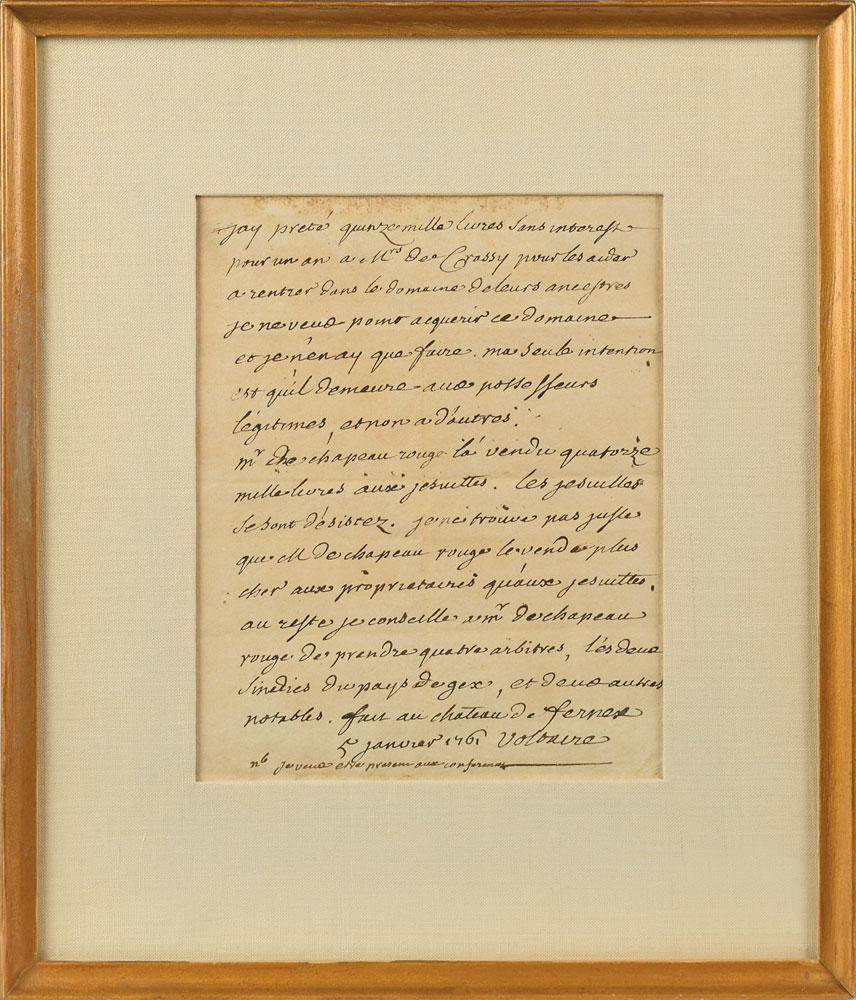 jay preté quinze mille livres sans interest
pour un an a Mrs de Crassy pour les aider
a rentrer dans le domaine de leurs ancestres
je ne veux point acquerir ce domaine
et je n'en ay que faire. ma seule intention
est qu'il demeure aux possesseurs
légitimes, et non a d'autres.
mr de chapeau rouge la vendu quatorze
mille livres aux jesuittes. les jesuittes
se sont désistez. je ne trouve pas juste
que M de chapeau rouge le vende plus
cher aux proprietaires qu'aux jesuittes.
au reste je conseille a mr de chapeau
rouge de prendre quatre arbitres, les deux
sindics du pays de gex, et deux autres
notables. fait au chateau de fernex
5 janvier 1761 Voltaire
nb je veux etre present aux conferences